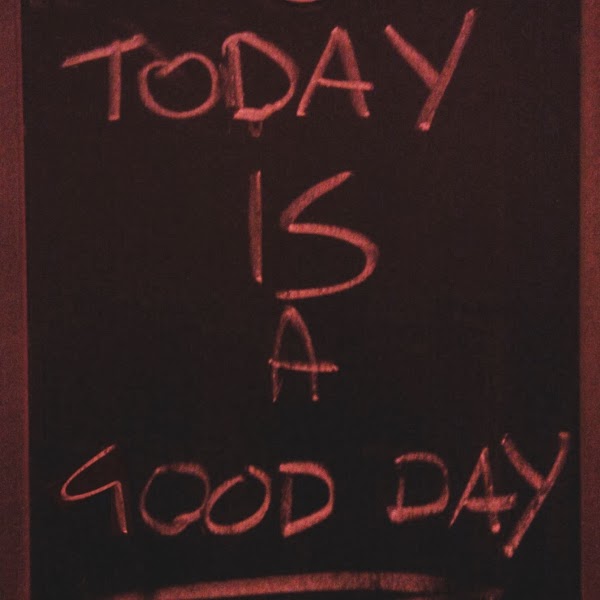 TODAY
IS
A
GOOD DAY